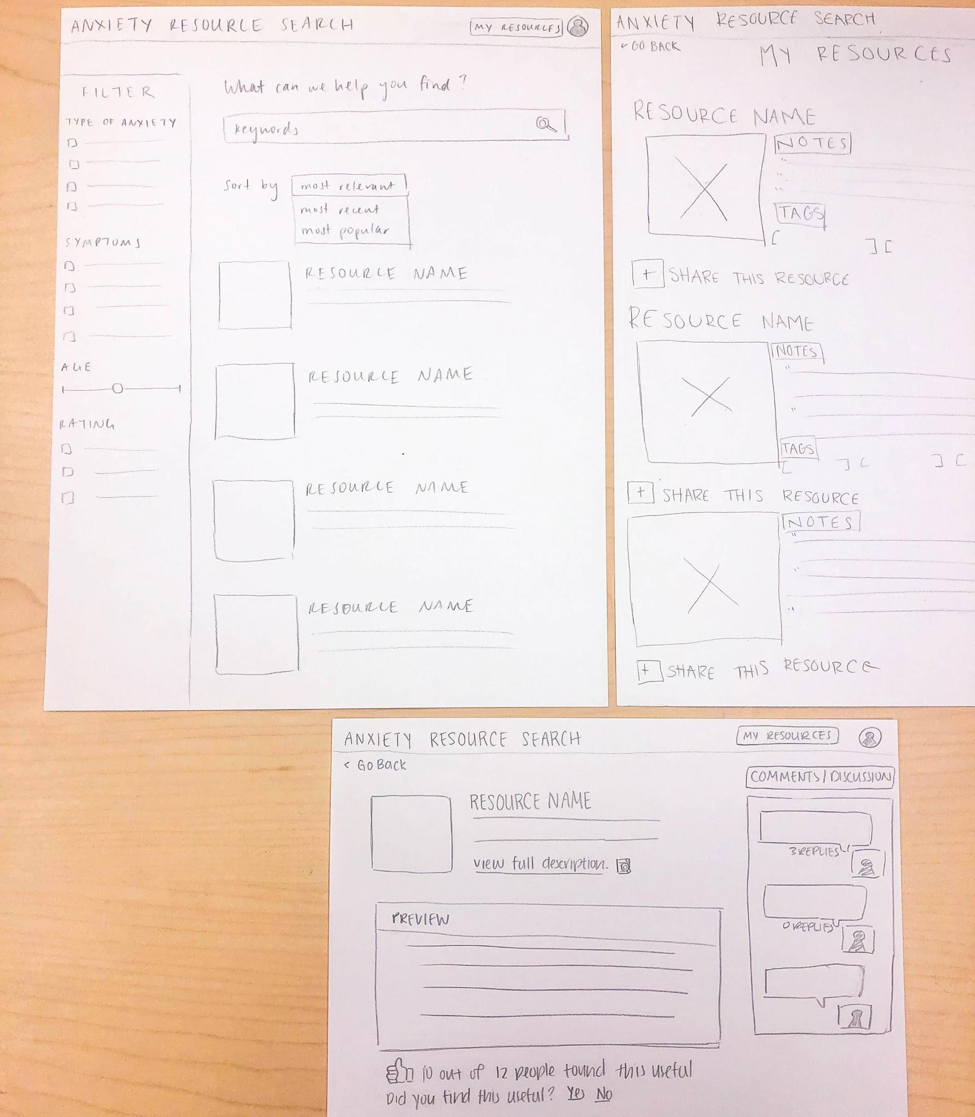 ANXIETY RESOURCE SEARCH
MY RESOURCES
FILTER
TYPE OF ANXIETY
SYMPTOMS
AGE
RATING
What can we help you find?
keywords
Sort by most relevant
most recent
most popular
RESOURCE NAME
RESOURCE NAME
RESOURCE NAME
RESOURCE NAME
ANXIETY RESOURCE SEARCH
< GO BACK
MY RESOURCES
RESOURCE NAME
NOTES
TAGS
[ ] [
+ SHARE THIS RESOURCE
RESOURCE NAME
NOTES
TAGS
[ ] [ ] [
+ SHARE THIS RESOURCE
NOTES
+ SHARE THIS RESOURCE
ANXIETY RESOURCE SEARCH
MY RESOURCES
< GO BACK
RESOURCE NAME
view full description.
PREVIEW
10 out of 12 people found this useful
Did you find this useful? Yes No
COMMENTS/DISCUSSION
3 REPLIES
0 REPLIES